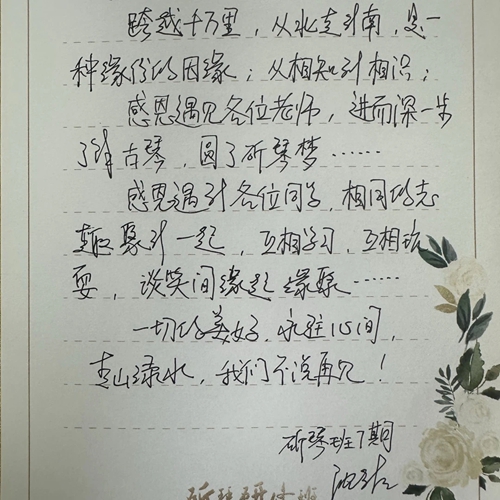 跨越千万里，从北走到南，是一
种缘份的因缘；从相知到相识；
感恩遇见各位老师，进而深一步
了解古琴，圆了斫琴梦……
感恩遇到各位同学，相同的志
趣聚到一起，互相学习，互相玩
耍，谈笑间缘起缘聚……
一切的美好，永驻心间，
青山绿水，我们不说再见！
斫琴班7期